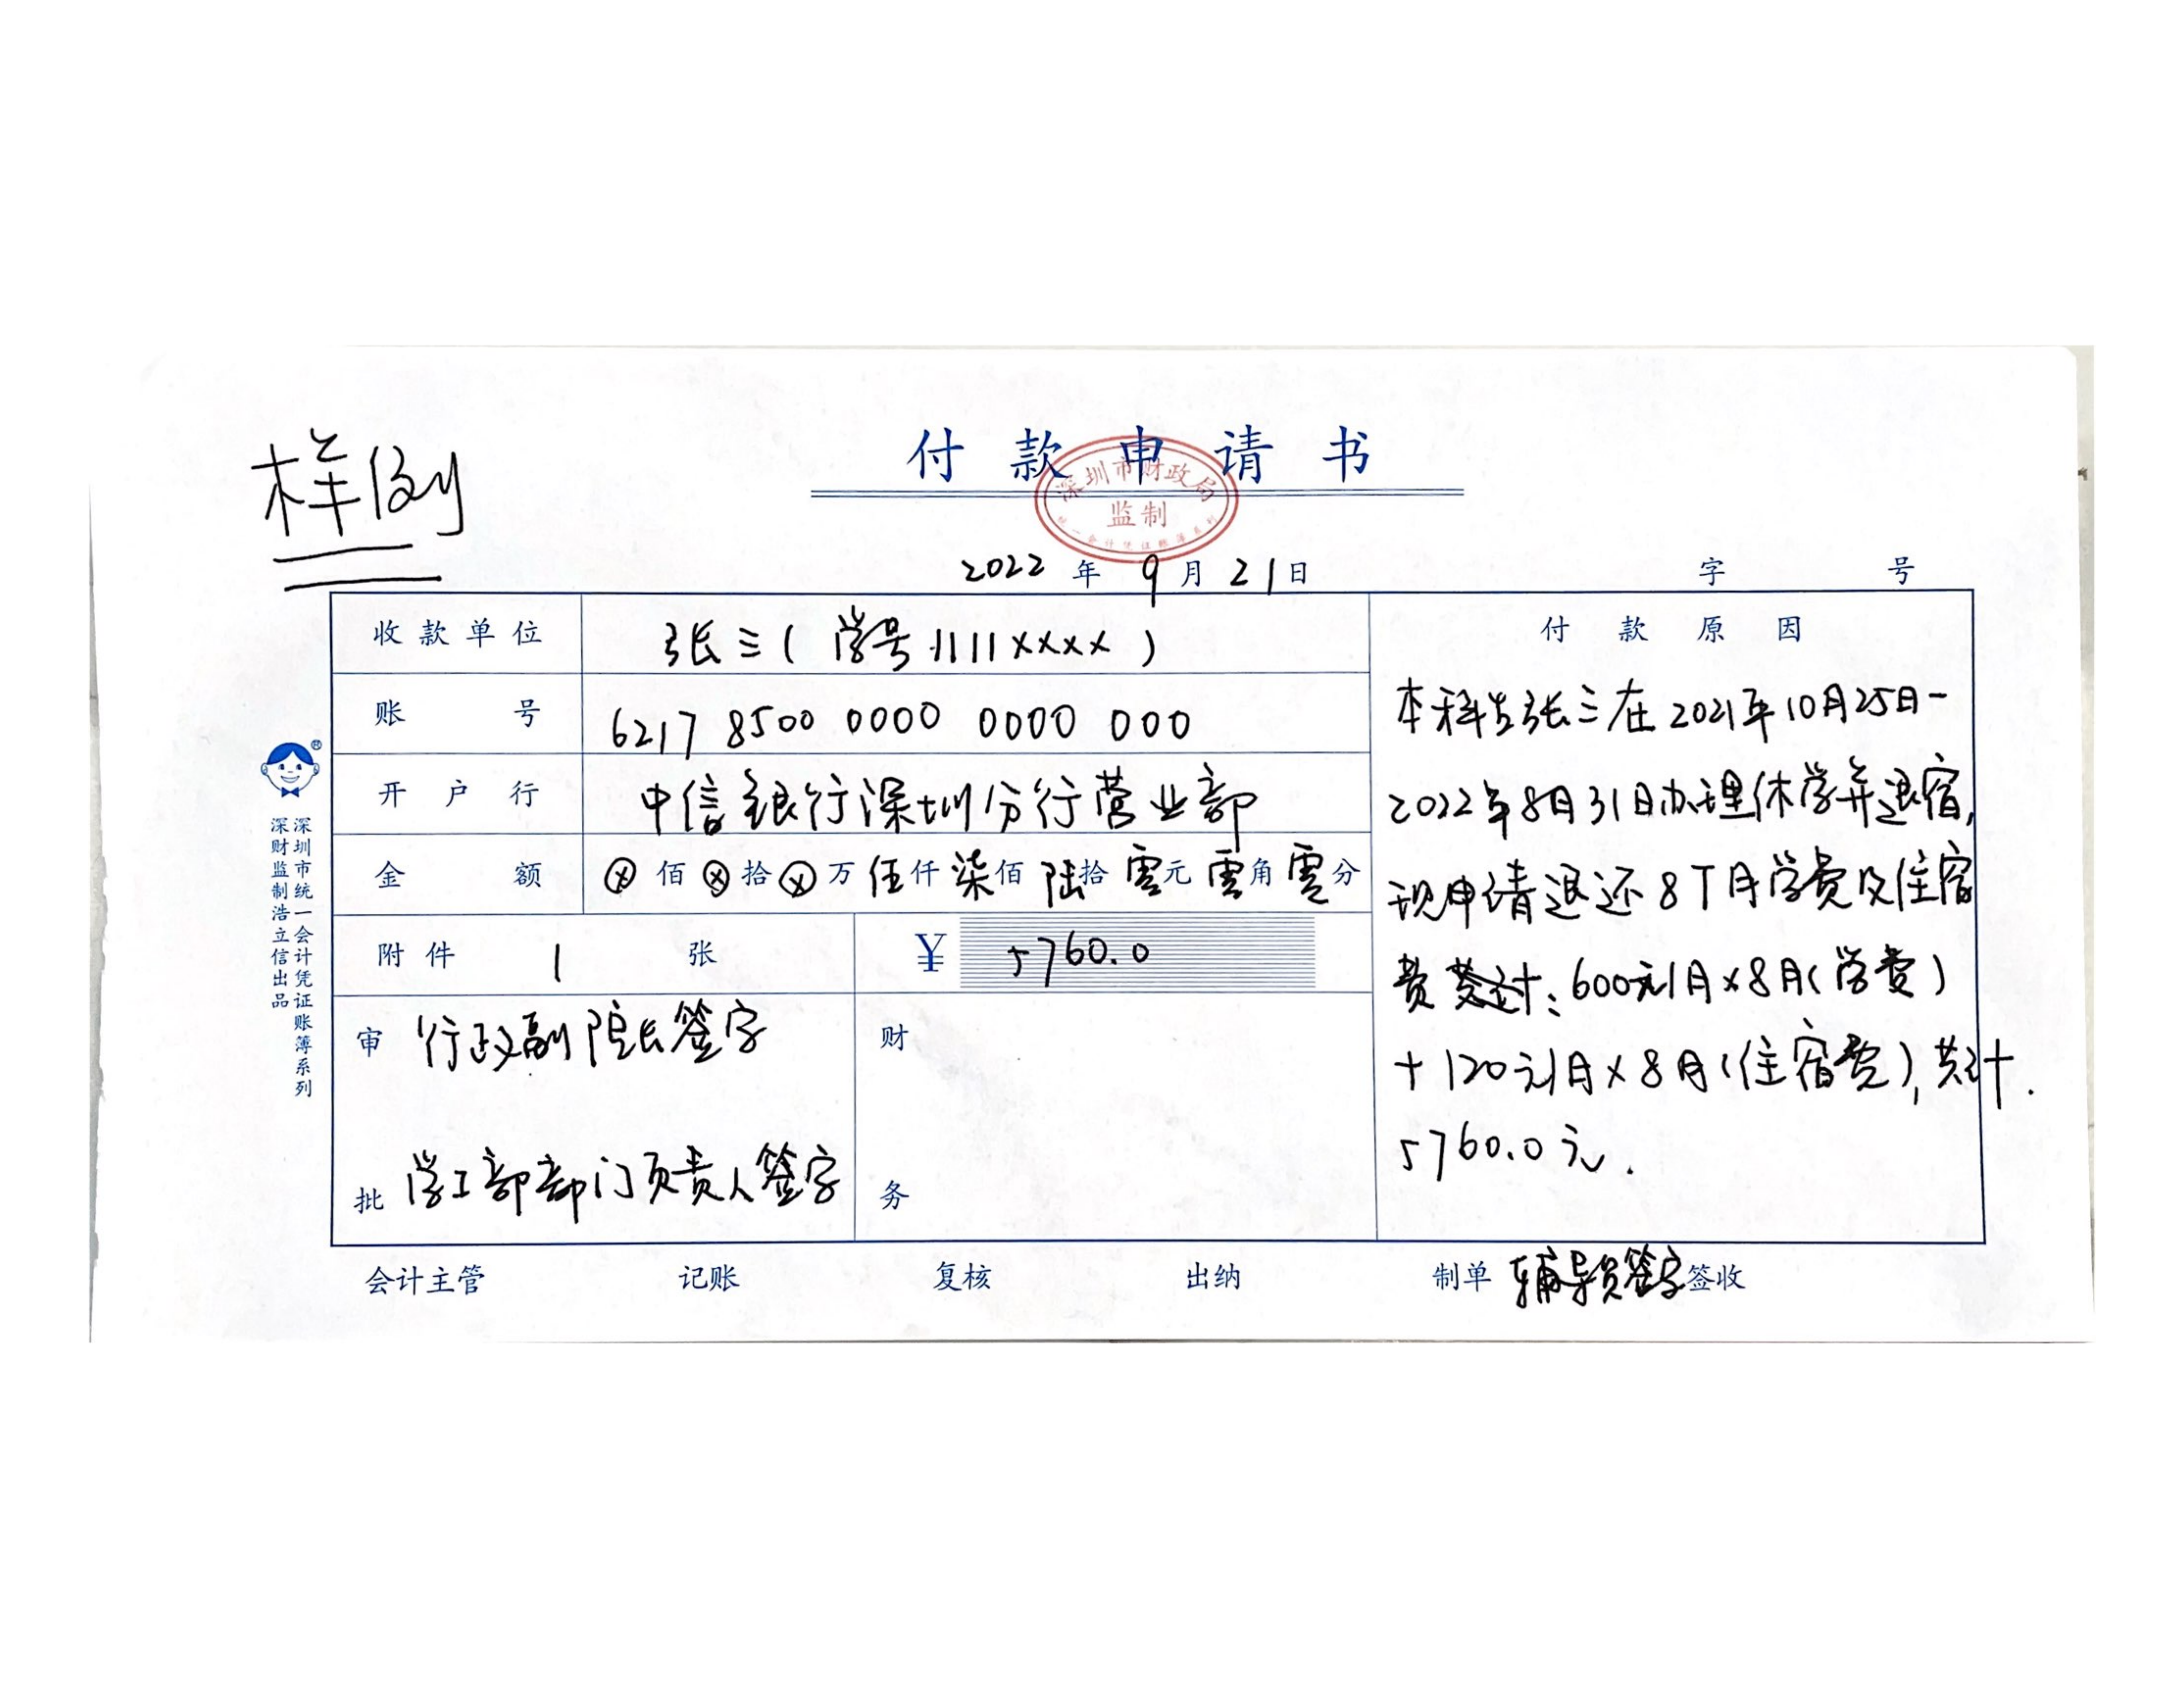 样例
付款申请书
深圳市财政局
监制
统一会计凭证账簿系列
2022年9月21日 字 号
收款单位 张三(学号1111xxxx)
账号 6217 8500 0000 0000 000
开户行 中信银行深圳分行营业部
金额 ⓧ佰ⓧ拾ⓧ万伍仟柒佰陆拾零元零角零分
附件 1 张 ¥ 5760.0
审批
行政副院长签字
学工部部门负责人签字
财务
付款原因
本科生张三在2021年10月25日-
2022年8月31日办理休学并退宿,
现申请退还8个月学费及住宿
费共计:600元/月x8月(学费)
+120元/月x8月(住宿费),共计
5760.0元.
会计主管 记账 复核 出纳 制单 辅导员签字 签收
深圳市统一会计凭证账簿系列
深财监制浩立信出品
®